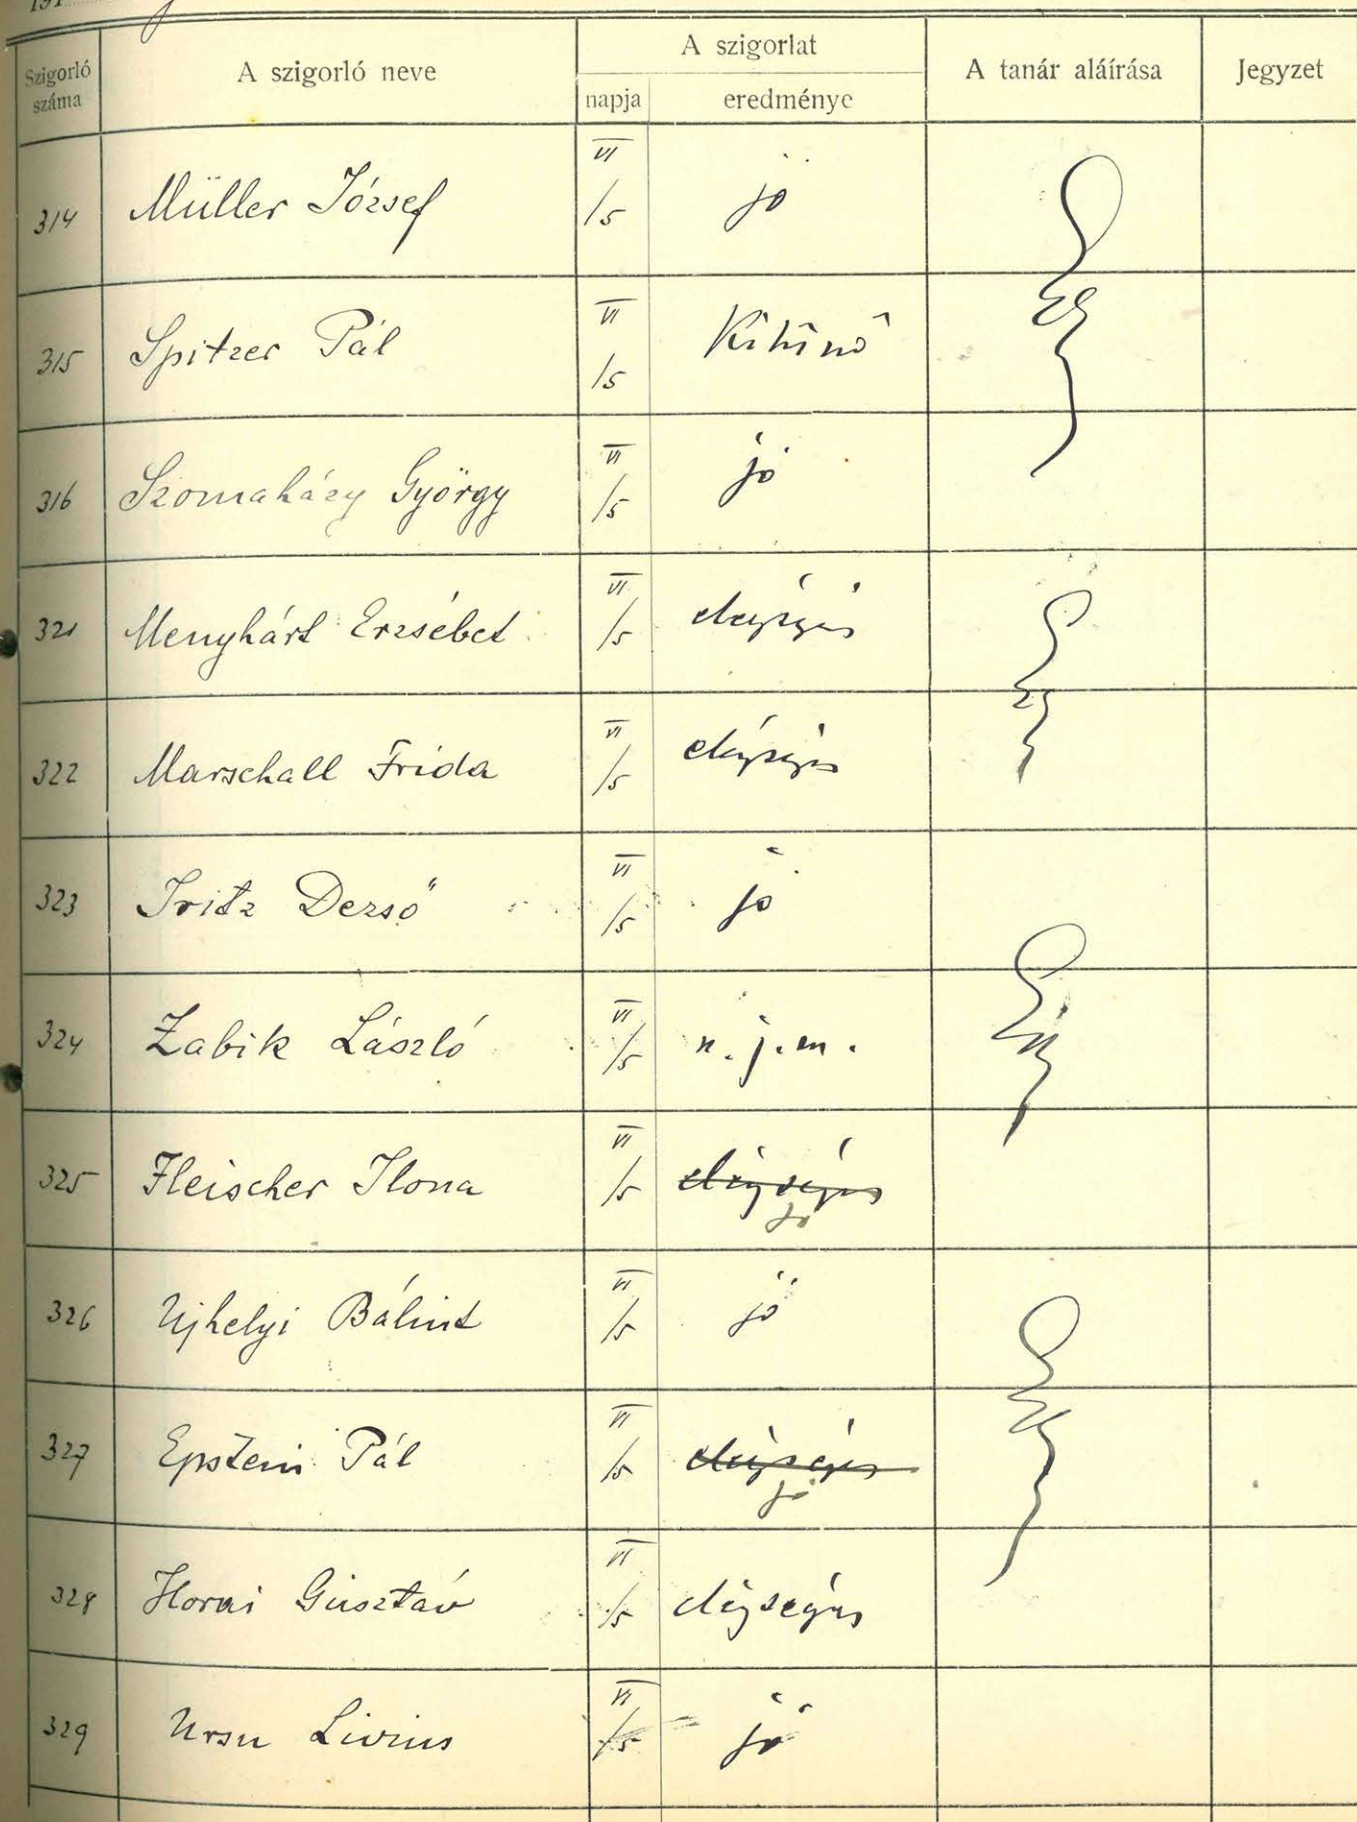 191
Szigorló száma | A szigorló neve | A szigorlat | A tanár aláírása | Jegyzet
napja | eredménye
314 | Müller József | VI/5 | jó
315 | Spitzer Pál | VI/5 | Kitünő
316 | Szomaházy György | VI/5 | jó
321 | Menyhárt Erzsébet | VI/5 | elégséges
322 | Marschall Frida | VI/5 | elégséges
323 | Fritz Dezső | VI/5 | jó
324 | Zabik László | VI/5 | n. j. m.
325 | Fleischer Ilona | VI/5 | elégséges
jó
326 | Ujhelyi Bálint | VI/5 | jó
327 | Epstein Pál | VI/5 | elégséges
jó
328 | Gusztáv | VI/5 | elégséges
329 | Ursu Livius | VI/5 | jó